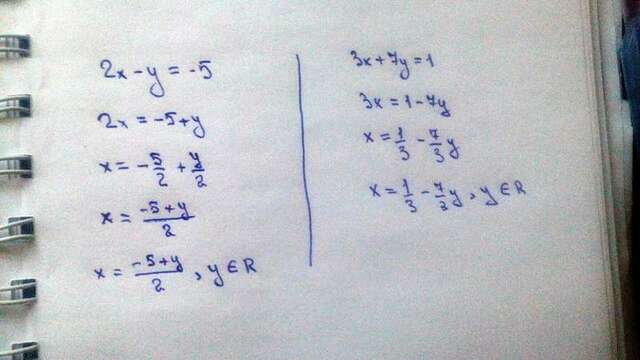 2x - y = -5
2x = -5 + y
x = -5/2 + y/2
x = (-5+y)/2
x = (-5+y)/2 , y ∈ R
3x + 7y = 1
3x = 1 - 7y
x = 1/3 - 7/3 y
x = 1/3 - 7/3 y , y ∈ R